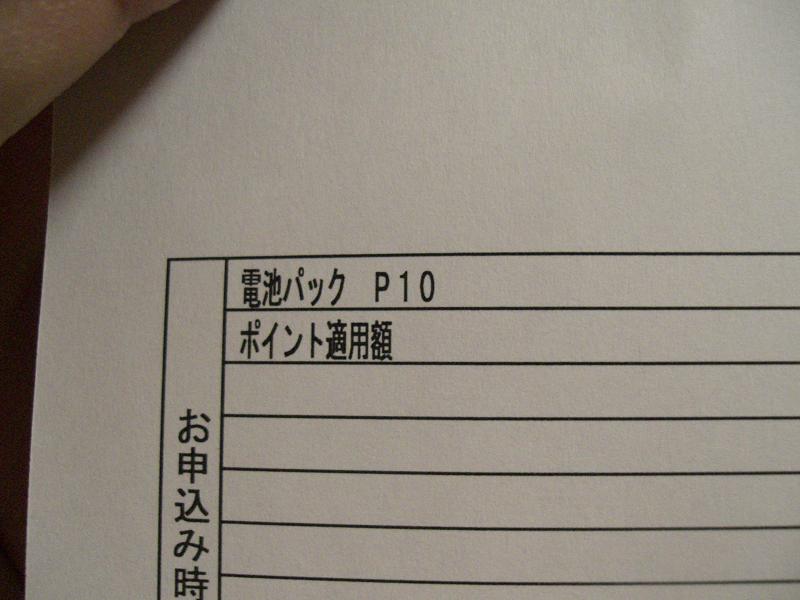 電池パック　P10
ポイント適用額
お申込み時